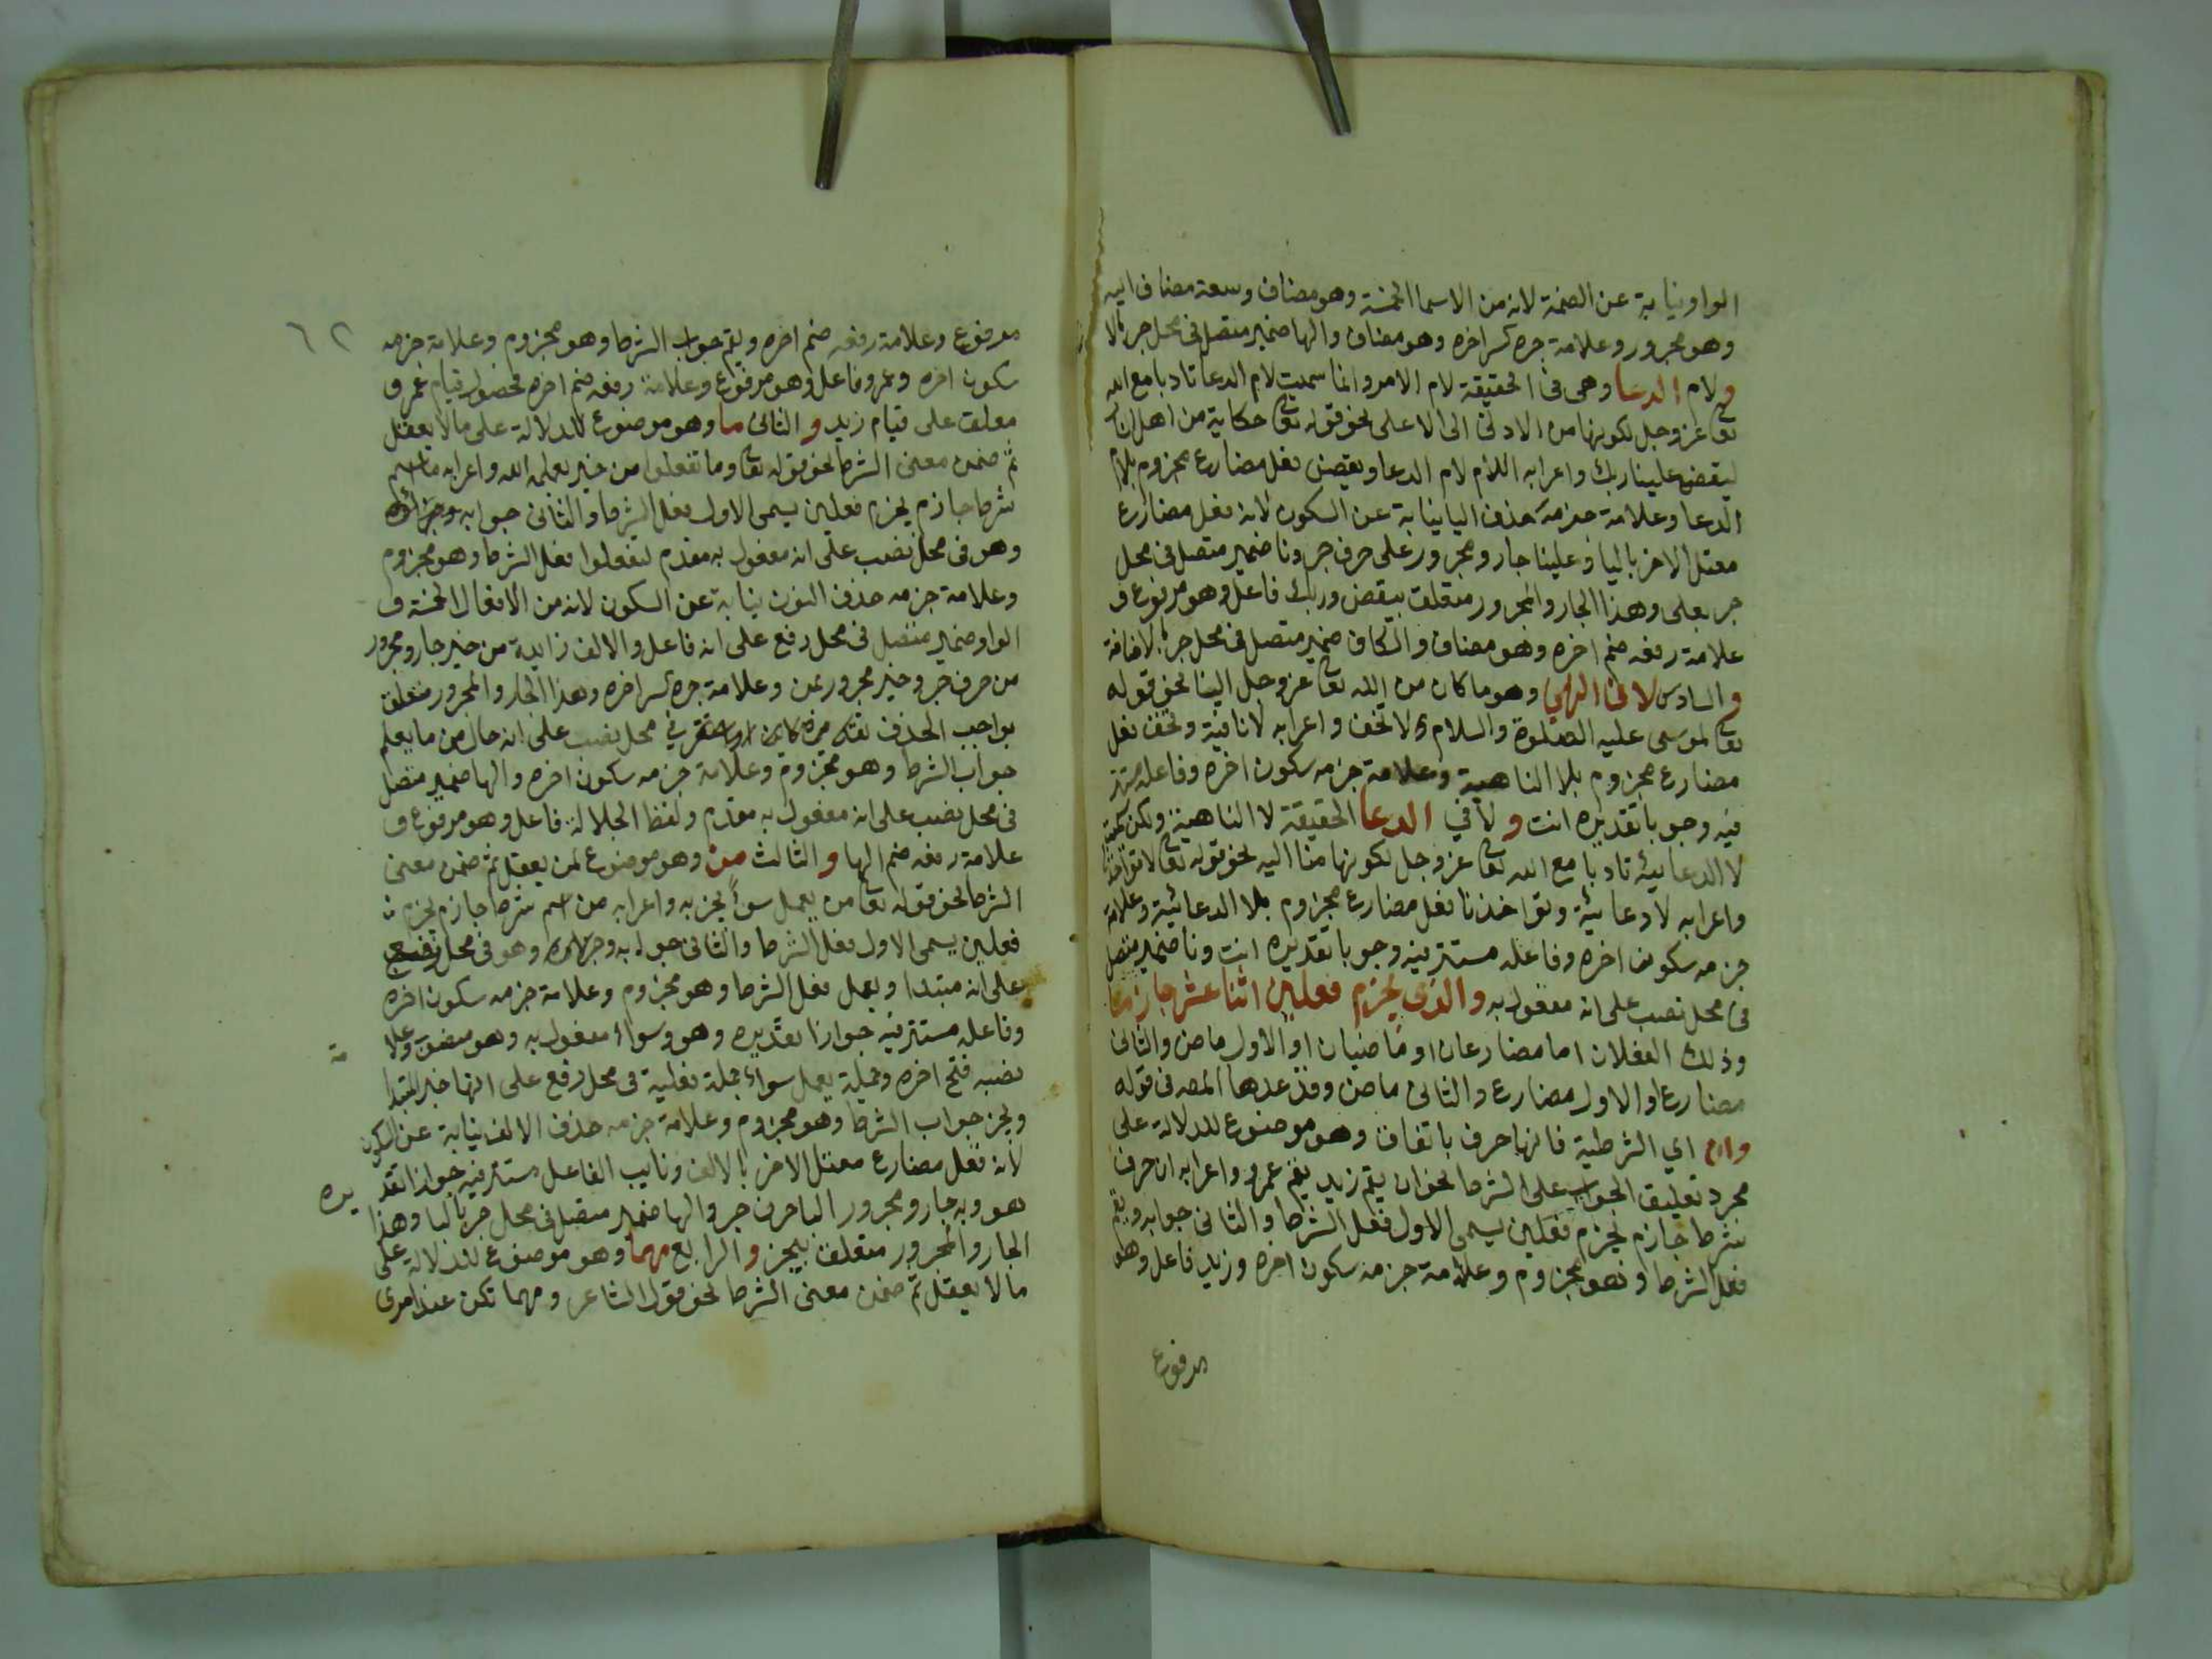 الواو نيابة عن الضمة لانه من الاسما الخمسة وهو مضاف وسعة مضاف اليه
وهو مجرور وعلامة جره كسر اخره وهو مضاف والها ضمير متصل فى محل جر بالا
ولام الدعا وهى فى الحقيقة لام الامر وانما سميت لام الدعا تادبا مع الله
تعالى عز وجل لكونها من الادنى الى الاعلى نحو قوله تعالى حكاية من اهل النار
ليقض علينا ربك واعرابه اللام لام الدعا ويقض فعل مضارع مجزوم بلام
الدعا وعلامة جزمه حذف اليا نيابة عن السكون لانه فعل مضارع
معتل الاخر باليا وعلينا جار ومجرور على حرف جر ونا ضمير متصل فى محل
جر بعلى وهذا الجار والمجرور متعلق بيقض وربك فاعل وهو مرفوع و
علامة رفعه ضم اخره وهو مضاف والكاف ضمير متصل فى محل جر بالاضافة
والسادس لا فى النهي وهو ما كان من الله تعالى عز وجل الينا نحو قوله
تعالى لموسى عليه الصلوة والسلام لا تخف واعرابه لا نافية وتخف فعل
مضارع مجزوم بلا الناهية وعلامة جزمه سكون اخره وفاعله مستتر
فيه وجوبا تقديره انت ولا في الدعا الحقيقة لا الناهية ولكن سميت
لا الدعائية تادبا مع الله تعالى عز وجل لكونها منا اليه نحو قوله تعالى لا تؤاخذنا
واعرابه لا دعائية وتؤاخذنا فعل مضارع مجزوم بلا الدعائية وعلامة
جزمه سكون اخره وفاعله مستتر فيه وجوبا تقديره انت ونا ضمير متصل
فى محل نصب على انه مفعول به والذى يجزم فعلين اثنا عشر جازما
وذلك الفعلان اما مضارعان او ماضيان او الاول ماض والثانى
مضارع او الاول مضارع والثانى ماض وقد عدها المصه فى قوله
وان اي الشرطية فانها حرف باتفاق وهو موضوع للدلالة على
مجرد تعليق الجواب على الشرط نحو ان يقم زيد يقم عمرو واعرابه ان حرف
شرط جازم يجزم فعلين يسمى الاول فعل الشرط والثانى جوابه ويقم
فعل الشرط وهو مجزوم وعلامة جزمه سكون اخره وزيد فاعل وهو
مرفوع
٦٢
مرفوع وعلامة رفعه ضم اخره ويقم جواب الشرط وهو مجزوم وعلامة جزمه
سكون اخره وعمرو فاعل وهو مرفوع وعلامة رفعه ضم اخره فحصول قيام عمرو
معلق على قيام زيد والثانى ما وهو موضوع للدلالة على ما لا يعقل
ثم ضمن معنى الشرط نحو قوله تعالى وما تفعلوا من خير يعلمه الله واعرابه ما اسم
شرط جازم يجزم فعلين يسمى الاول فعل الشرط والثانى جوابه وجزائه
وهو فى محل نصب على انه مفعول به مقدم لتفعلوا فعل الشرط وهو مجزوم
وعلامة جزمه حذف النون نيابة عن السكون لانه من الافعال الخمسة و
الواو ضمير متصل فى محل رفع على انه فاعل والالف زايدة من خير جار ومجرور
من حرف جر وخير مجرور بمن وعلامة جره كسر اخره وهذا الجار والمجرور متعلق
بواجب الحذف تقديره كاين او استقر في محل نصب على انه حال من ما يعلم
جواب الشرط وهو مجزوم وعلامة جزمه سكون اخره والها ضمير متصل
فى محل نصب على انه مفعول به مقدم ولفظ الجلالة فاعل وهو مرفوع و
علامة رفعه ضم الها والثالث من وهو موضوع لمن يعقل ثم ضمن معنى
الشرط نحو قوله تعالى من يعمل سوأ يجز به واعرابه من اسم شرط جازم يجزم
فعلين يسمى الاول فعل الشرط والثانى جوابه وجزائه وهو فى محل رفع
على انه مبتدا ويعمل فعل الشرط وهو مجزوم وعلامة جزمه سكون اخره
وفاعله مستتر فيه جوازا تقديره وهو وسواء مفعول به وهو منصوب وعلا مة
نصبه فتح اخره وجملة يعمل سواء جملة فعلية فى محل رفع على انها خبر المبتدا
ويجز جواب الشرط وهو مجزوم وعلامة جزمه حذف الالف نيابة عن السكون
لانه فعل مضارع معتل الاخر بالالف ونايب الفاعل مستتر فيه جوازا تقد يره
هو وبه جار ومجرور البا حرف جر والها ضمير متصل فى محل جر بالبا وهذا
الجار والمجرور متعلق بيجز والرابع مهما وهو موضوع للدلالة على
ما لا يعقل ثم ضمن معنى الشرط نحو قول الشاعر ومهما تكن عند امرى